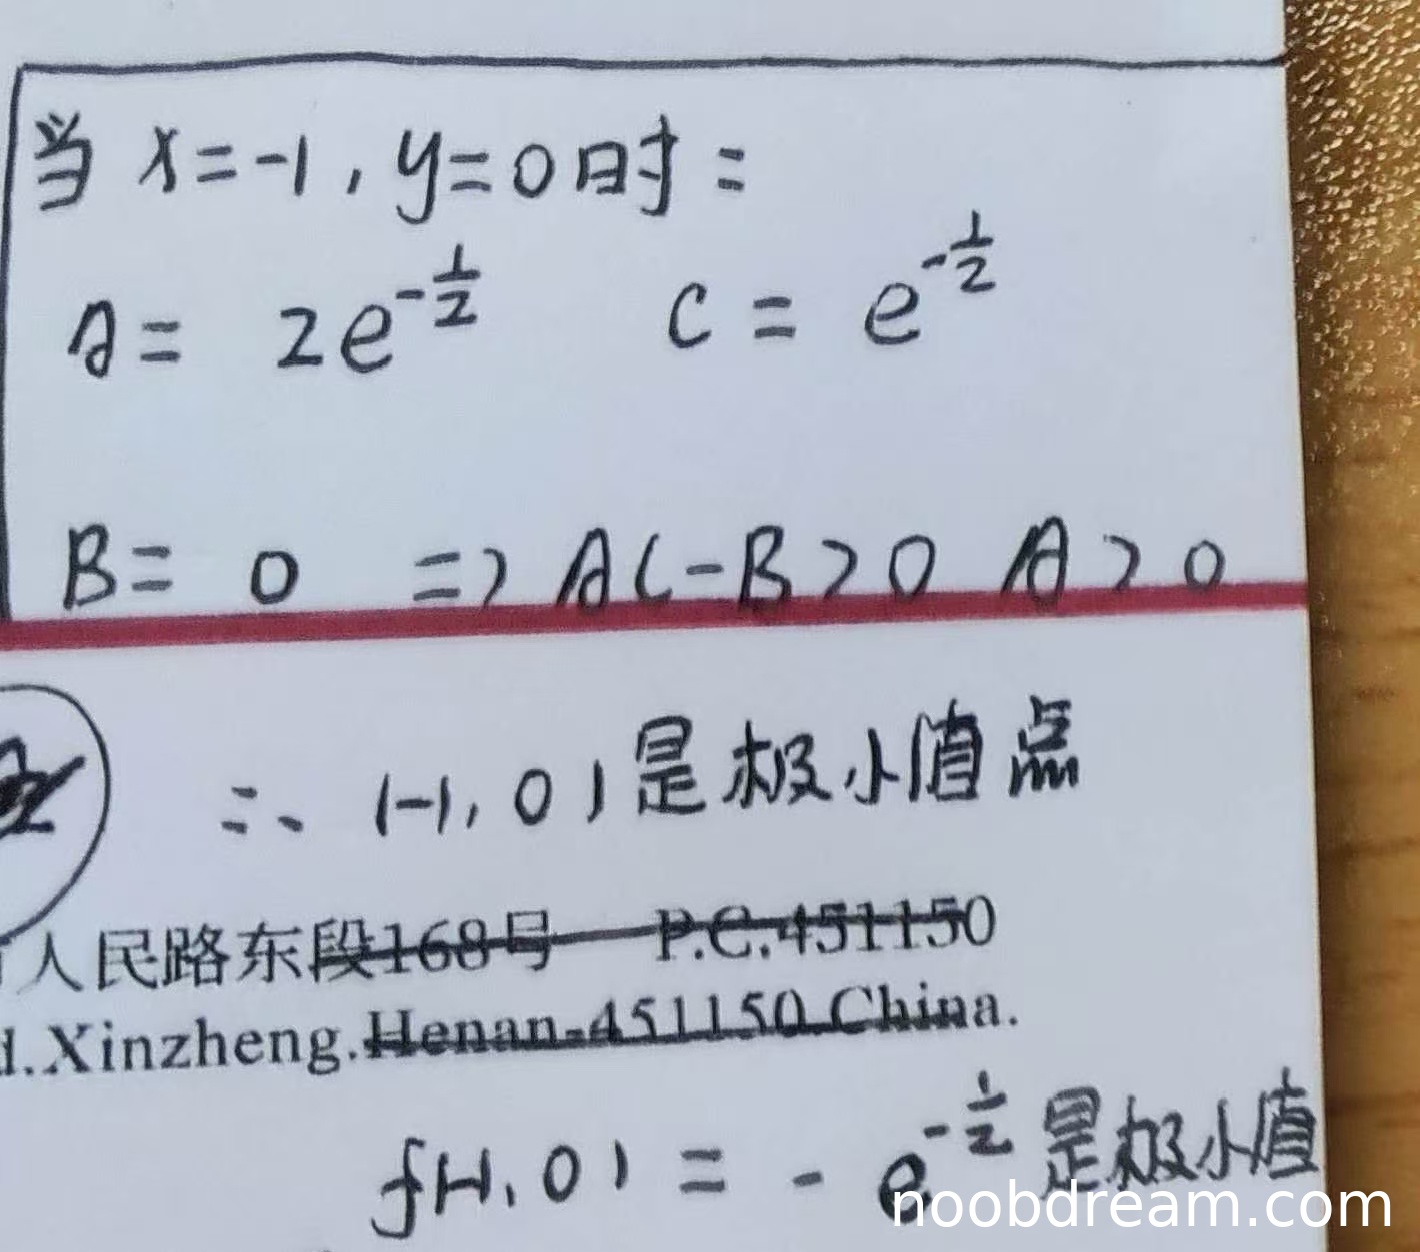 当 x=-1, y=0时:
A= 2e^{-\frac{1}{2}} C = e^{-\frac{1}{2}}
B= 0 => AC-B>0 A>0
∴ (-1, 0)是极小值点
人民路东段168号 P.C.451150
d.Xinzheng.Henan.451150.China.
f(-1, 0) = - e^{-\frac{1}{2}} 是极小值
noobdream.com